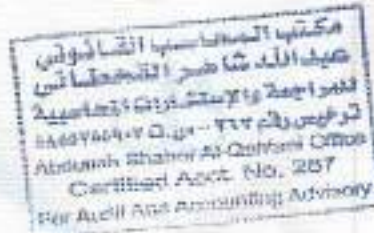 مكتب المحاسب القانوني
عبدالله شاهر القحطاني
للمراجعة والاستشارات المحاسبية
ترخيص رقم
Abdullah Shaher Al-Qahtani Office
Certified Acct. No. 267
For Audit And Accounting Advisory